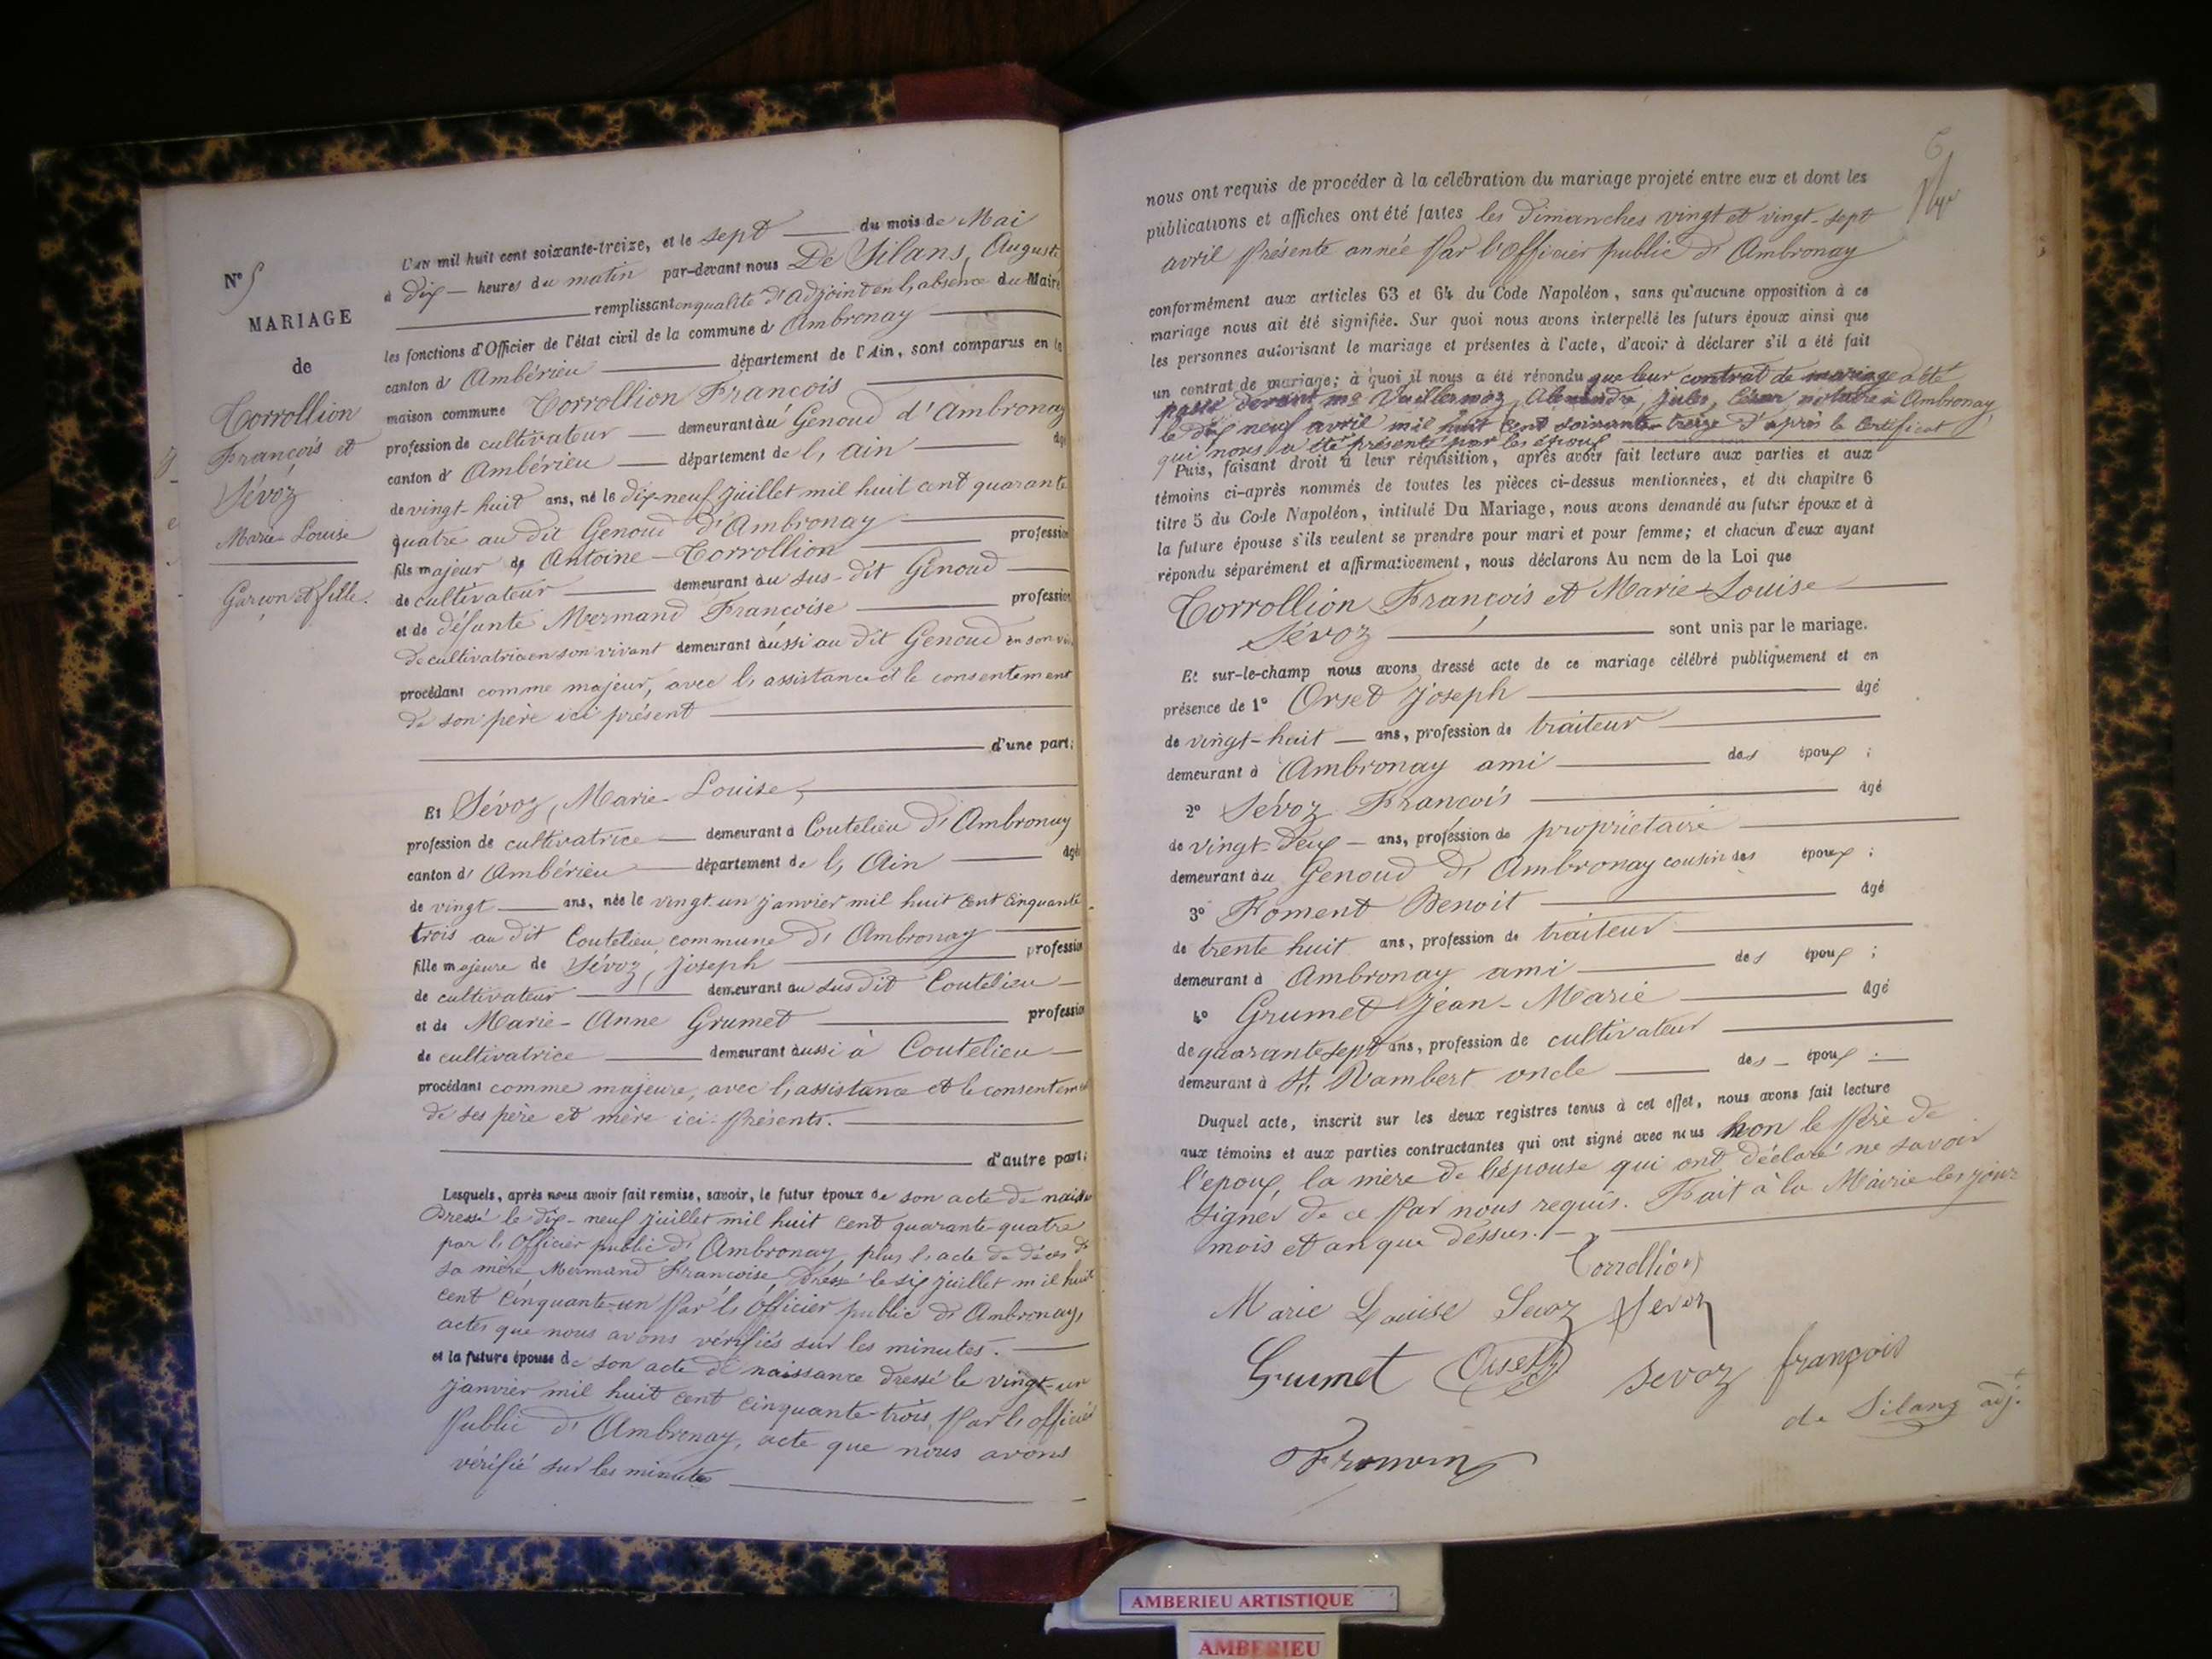 N° 5
MARIAGE
de
Corrollion
François et
Sévoz
Marie-Louise
Garçon et fille.
L'AN mil huit cent soixante-treize, et le sept du mois de Mai
à dix heures du matin par-devant nous De Silans, Auguste,
remplissant en qualité d'adjoint en l'absence du Maire
les fonctions d'Officier de l'état civil de la commune d'Ambronay
canton d'Ambérieu département de l'Ain, sont comparus en la
maison commune Corrollion François
profession de cultivateur demeurant au Genoud d'Ambronay
canton d'Ambérieu département de l'Ain âgé
de vingt-huit ans, né le dix-neuf juillet mil huit cent quarante
quatre au dit Genoud d'Ambronay
fils majeur de Antoine Corrollion profession
de cultivateur demeurant au sus-dit Genoud
et de défunte Mermand Françoise profession
de cultivatrice en son vivant demeurant aussi au dit Genoud en son
procédant comme majeur, avec l'assistance et le consentement
de son père ici présent
d'une part;
Et Sévoz, Marie-Louise,
profession de cultivatrice demeurant à Coutelieu d'Ambronay
canton d'Ambérieu département de l'Ain âgée
de vingt ans, née le vingt-un janvier mil huit cent cinquante
trois au dit Coutelieu commune d'Ambronay
fille majeure de Sévoz, Joseph profession
de cultivateur demeurant au susdit Coutelieu
et de Marie-Anne Grumet profession
de cultivatrice demeurant aussi à Coutelieu
procédant comme majeure, avec l'assistance et le consentement
de ses père et mère ici présents.
d'autre part;
Lesquels, après nous avoir fait remise, savoir, le futur époux de son acte de
Dressé le dix-neuf juillet mil huit cent quarante-quatre
par l'Officier public d'Ambronay, plus l'acte de décès de
sa mère, Mermand Françoise, dressé le six juillet mil huit
cent cinquante-un par l'Officier public d'Ambronay,
actes que nous avons vérifiés sur les minutes.
et la future épouse de son acte de naissance dressé le vingt-un
janvier mil huit cent cinquante-trois, par l'officier
public d'Ambronay, acte que nous avons
vérifié sur les minutes
6
nous ont requis de procéder à la célébration du mariage projeté entre eux et dont les
publications et affiches ont été faites les dimanches vingt et vingt-sept
avril présente année par l'Officier public d'Ambronay
conformément aux articles 63 et 64 du Code Napoléon, sans qu'aucune opposition à ce
mariage nous ait été signifiée. Sur quoi nous avons interpellé les futurs époux ainsi que
les personnes autorisant le mariage et présentes à l'acte, d'avoir à déclarer s'il a été fait
un contrat de mariage; à quoi il nous a été répondu que leur contrat de mariage a été
passé devant me Vuillermoz, Alexandre, Jules, César, notaire à Ambronay,
le dix neuf avril mil huit cent soixante-treize d'après le certificat
qui nous a été présenté par les époux
Puis, faisant droit à leur réquisition, après avoir fait lecture aux parties et aux
témoins ci-après nommés de toutes les pièces ci-dessus mentionnées, et du chapitre 6
titre 5 du Code Napoléon, intitulé Du Mariage, nous avons demandé au futur époux et à
la future épouse s'ils veulent se prendre pour mari et pour femme; et chacun d'eux ayant
répondu séparément et affirmativement, nous déclarons Au nom de la Loi que
Corrollion François et Marie-Louise
Sévoz sont unis par le mariage.
Et sur-le-champ nous avons dressé acte de ce mariage célébré publiquement et en
présence de 1° Orset Joseph âgé
de vingt-huit ans, profession de traiteur
demeurant à Ambronay ami des époux ;
2° Sévoz François âgé
de vingt-deux ans, profession de propriétaire
demeurant au Genoud d'Ambronay cousin des époux ;
3° Froment Benoit âgé
de trente huit ans, profession de traiteur
demeurant à Ambronay ami des époux ;
4° Grumet Jean-Marie âgé
de quarante sept ans, profession de cultivateur
demeurant à St. Rambert oncle des époux.
Duquel acte, inscrit sur les deux registres tenus à cet effet, nous avons fait lecture
aux témoins et aux parties contractantes qui ont signé avec nous non le père de
l'époux, la mère de l'épouse qui ont déclaré ne savoir
signer de ce par nous requis. Fait à la Mairie les jour
mois et an que dessus.
Corrollion
Marie Louise Sevoz Sevoz
Grumet Orset Sevoz françois
de Silans adjt
Froment
AMBERIEU ARTISTIQUE
AMBERIEU